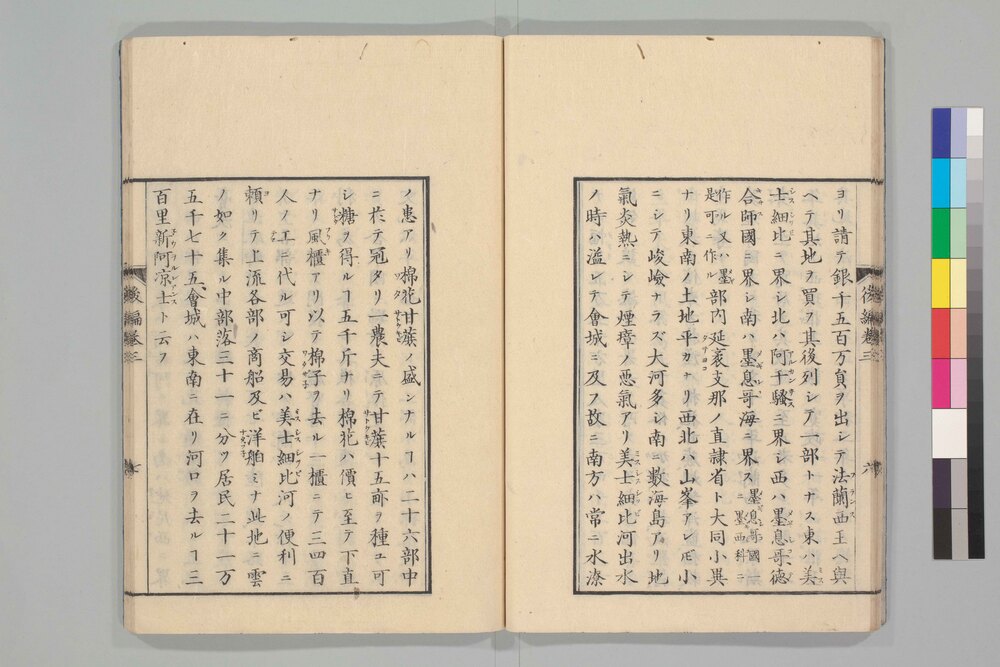 ヨリ請テ銀千五百万員ヲ出シテ法蘭西王ヘ與
ヘテ其地ヲ買フ其後列シテ一部トナス東ハ美
士細比ニ界シ北ハ阿干騷ニ界シ西ハ墨息哥德
合師國ニ界シ南ハ墨息哥海ニ界ス墨息哥國一ニ墨西科ニ
作ル又ハ墨是可ニ作ル部内延袤支那ノ直隷省ト大同小異
ナリ東南ノ土地平カナリ西北ハ山峯アレ𪜈小
ニシテ峻嶮ナラズ大河多シ南ニ數海島アリ地
氣炎熱ニシテ煙瘴ノ悪氣アリ美士細比河出水
ノ時ハ溢レテ會城ニ及フ故ニ南方ハ常ニ水潦
後編巻三
六
ノ患アリ棉花甘蔗ノ盛ンナルヿハ二十六部中
ニ於テ冠タリ一農夫ニテ甘蔗十五畝ヲ種ユ可
シ糖ヲ得ルヿ五千斤ナリ棉花ハ價ヒ至テ下直
ナリ風櫃アリ以テ棉子ヲ去ル一櫃ニテ三四百
人ノ工ニ代ル可シ交易ハ美士細比河ノ便利ニ
頼リテ上流各部ノ商船及ビ洋舶ミナ此地ニ雲
ノ如ク集ル中部落三十一ニ分ツ居民二十一万
五千七十五會城ハ東南ニ在リ河口ヲ去ルヿ三
百里新阿凉士ト云フ
後編巻三
七